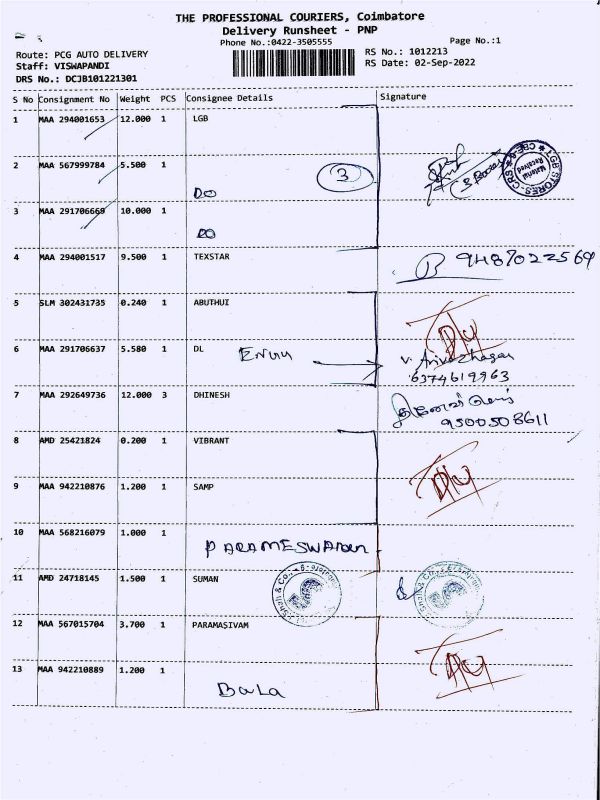 THE PROFESSIONAL COURIERS, Coimbatore
Delivery Runsheet - PNP
Phone No.:0422-3505555
Page No.:1
Route: PCG AUTO DELIVERY
RS No.: 1012213
Staff: VISWAPANDI
RS Date: 02-Sep-2022
DRS No.: DCJB101221301
S No Consignment No Weight PCS Consignee Details Signature
1 MAA 294001653 12.000 1 LGB
2 MAA 567999784 5.500 1
3
DO
LGB STORES-CRS
Material Received
3 MAA 291706669 10.000 1
DO
4 MAA 294001517 9.500 1 TEXSTAR
9487022569
5 SLM 302431735 0.240 1 ABUTHUI
6 MAA 291706637 5.580 1 DL
V. Arivazhagan
6374619963
7 MAA 292649736 12.000 3 DHINESH
9500508611
8 AMD 25421824 0.200 1 VIBRANT
9 MAA 942210876 1.200 1 SAMP
10 MAA 568216079 1.000 1
PARAMESWARAN
11 AMD 24718145 1.500 1 SUMAN
12 MAA 567015704 3.700 1 PARAMASIVAM
13 MAA 942210889 1.200 1
Bala